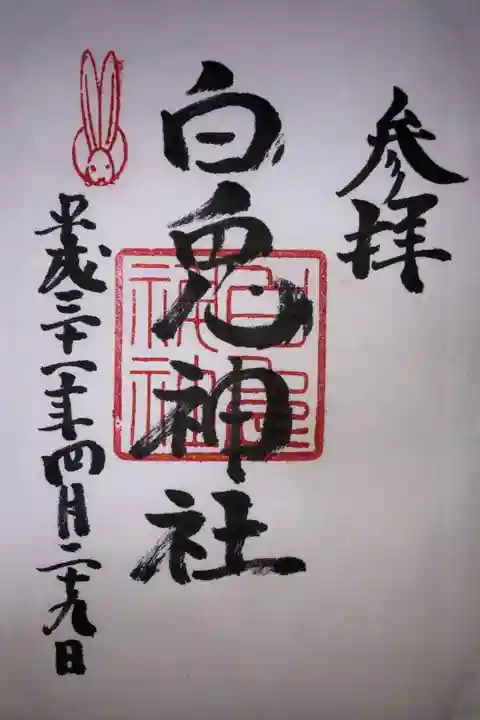 参拝
白兎神社
平成三十一年四月二十九日